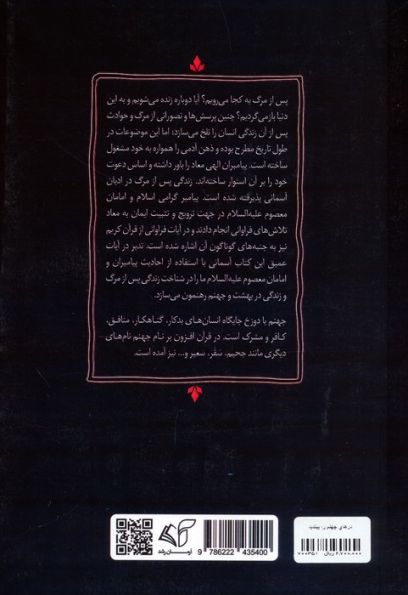 پس از مرگ به کجا می‌رویم؟ آیا دوباره زنده می‌شویم و به این
دنیا بازمی‌گردیم؟ چنین پرسش‌ها و تصوراتی از مرگ و حوادث
پس از آن زندگی انسان را تلخ می‌سازد؛ اما این موضوعات در
طول تاریخ مطرح بوده و ذهن آدمی را همواره به خود مشغول
ساخته است. پیامبران الهی معاد را باور داشته و اساس دعوت
خود را بر آن استوار ساخته‌اند. زندگی پس از مرگ در ادیان
آسمانی پذیرفته شده است. پیامبر گرامی اسلام و امامان
معصوم علیه‌السلام در جهت ترویج و تثبیت ایمان به معاد
تلاش‌های فراوانی انجام دادند و در آیات فراوانی از قرآن کریم
نیز به جنبه‌های گوناگون آن اشاره شده است. تدبر در آیات
عمیق این کتاب آسمانی با استفاده از احادیث پیامبران و
امامان معصوم علیه‌السلام ما را در شناخت زندگی پس از مرگ
و زندگی در بهشت و جهنم رهنمون می‌سازد.
جهنم یا دوزخ جایگاه انسان‌های بدکار، گناهکار، منافق،
کافر و مشرک است. در قرآن افزون بر نام جهنم نام‌های
دیگری مانند جحیم، سقر، سعیر و... نیز آمده است.
9 786222 435400